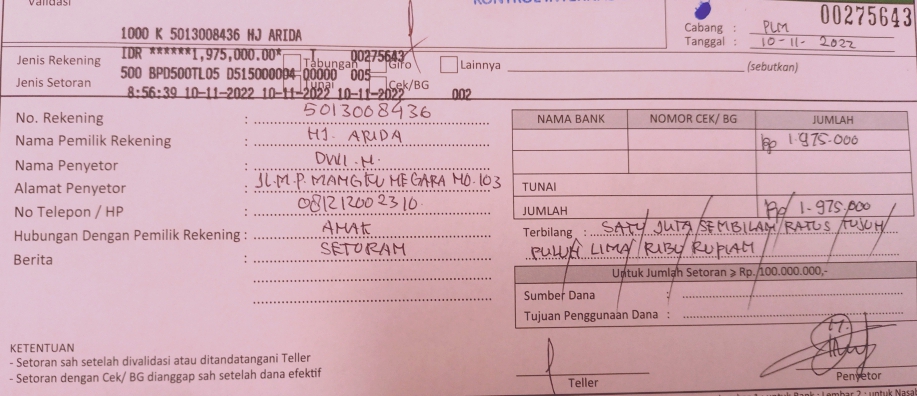 Validasi
00275643
1000 K 5013008436 HJ ARIDA
Cabang : PLM
Tanggal : 10-11-2022
IDR ******1,975,000.00* T 00275643
Jenis Rekening Tabungan Giro Lainnya (sebutkan)
500 BPD500TL05 D515000094 00000 005
Jenis Setoran Tunai Cek/BG
8:56:39 10-11-2022 10-11-2022 10-11-2022 002
No. Rekening : 5013008436
Nama Pemilik Rekening : HJ. ARIDA
Nama Penyetor : DWI.N.
Alamat Penyetor : JL.M.P. MANGKU NEGARA NO.103
No Telepon / HP : 081212002310
Hubungan Dengan Pemilik Rekening : ANAK
Berita : SETORAN
NAMA BANK NOMOR CEK/ BG JUMLAH
Rp 1.975.000
TUNAI
JUMLAH Rp 1.975.000
Terbilang : SATU JUTA SEMBILAN RATUS TUJUH
PULUH LIMA RIBU RUPIAH
Untuk Jumlah Setoran ≥ Rp. 100.000.000,-
Sumber Dana :
Tujuan Penggunaan Dana :
KETENTUAN
- Setoran sah setelah divalidasi atau ditandatangani Teller
- Setoran dengan Cek/ BG dianggap sah setelah dana efektif
Teller
Penyetor
untuk Bank : Lembar 2 : untuk Nasab